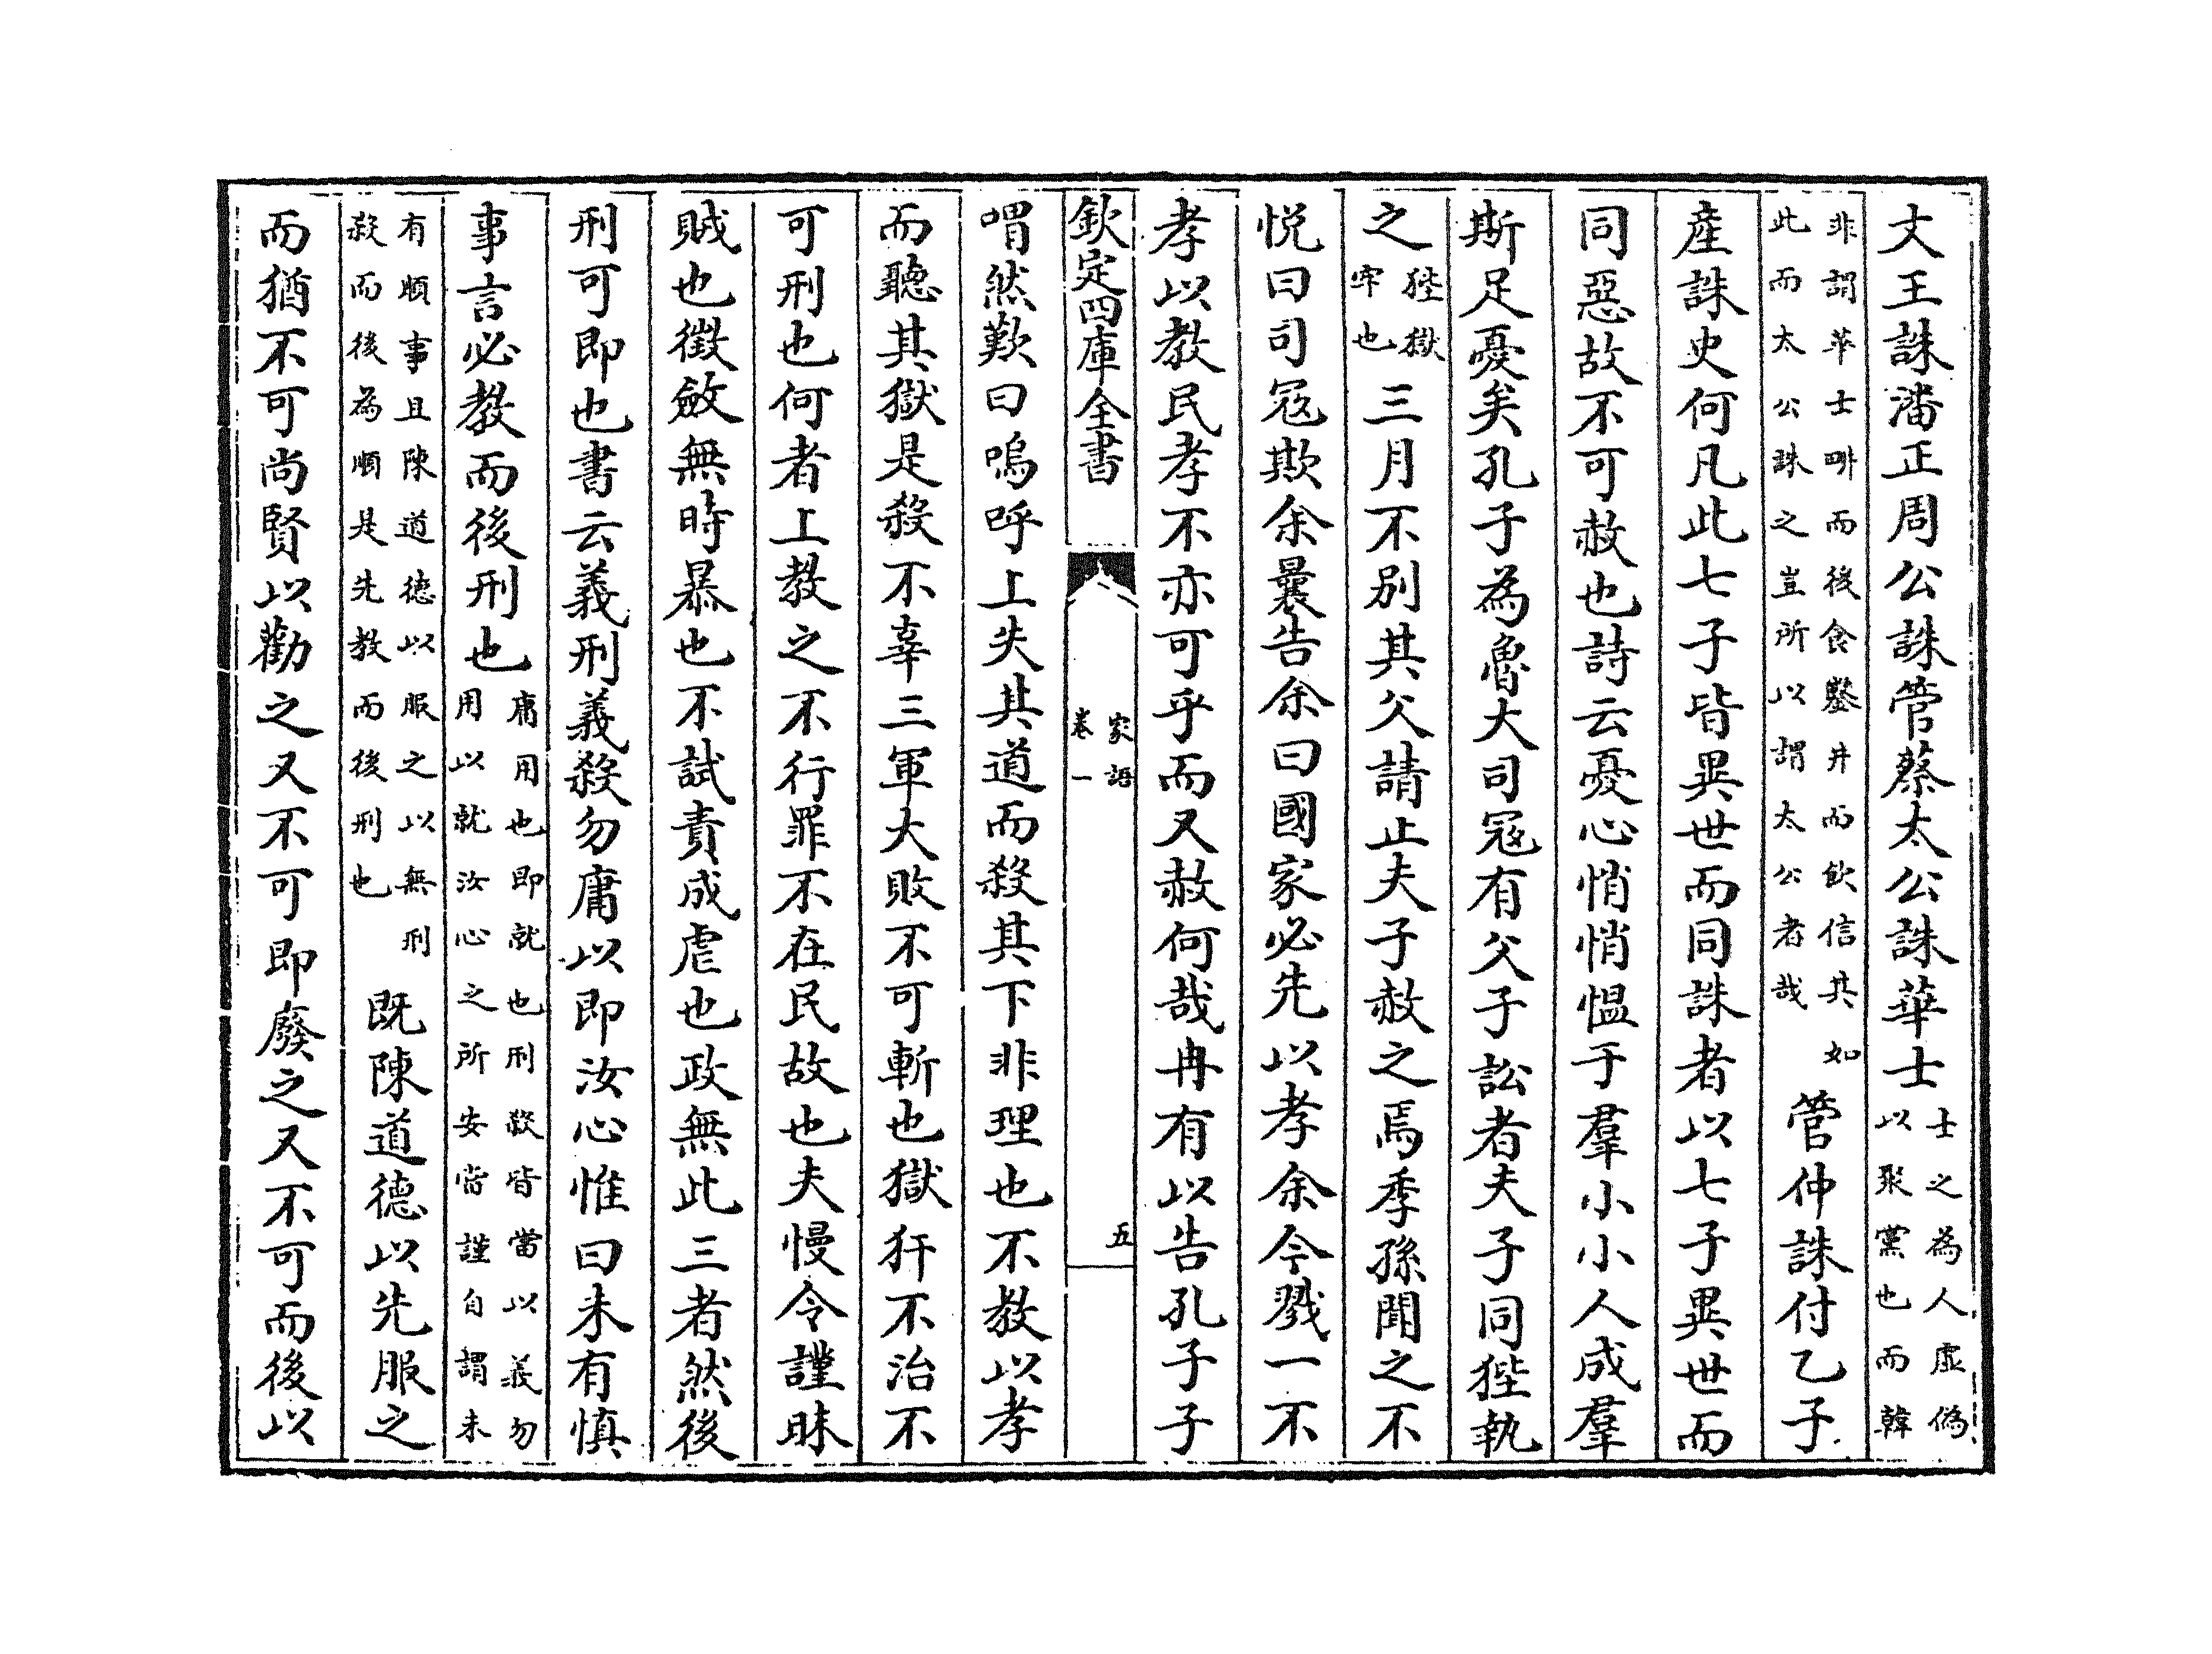 文王誅潘正周公誅管蔡太公誅華士士之為人虛偽以聚黨也而韓
非謂華士畊而後食鑿井而飲信其如此而太公誅之豈所以謂太公者哉管仲誅付乙子
產誅史何凡此七子皆異世而同誅者以七子異世而
同惡故不可赦也詩云憂心悄悄愠于羣小小人成羣
斯足憂矣孔子為魯大司寇有父子訟者夫子同狴執
之狴獄牢也三月不別其父請止夫子赦之焉季孫聞之不
悅曰司寇欺余曩告余曰國家必先以孝余今戮一不
孝以教民孝不亦可乎而又赦何哉冉有以告孔子子
欽定四庫全書
家語
卷一
五
喟然歎曰嗚呼上失其道而殺其下非理也不教以孝
而聽其獄是殺不辜三軍大敗不可斬也獄犴不治不
可刑也何者上教之不行罪不在民故也夫慢令謹昧
賊也徵斂無時暴也不試責成虐也政無此三者然後
刑可即也書云義刑義殺勿庸以即汝心惟曰未有慎
事言必教而後刑也庸用也即就也刑殺皆當以義勿用以就汝心之所安當謹自謂未
有順事且陳道德以服之以無刑殺而後為順是先教而後刑也既陳道德以先服之
而猶不可尚賢以勸之又不可即廢之又不可而後以